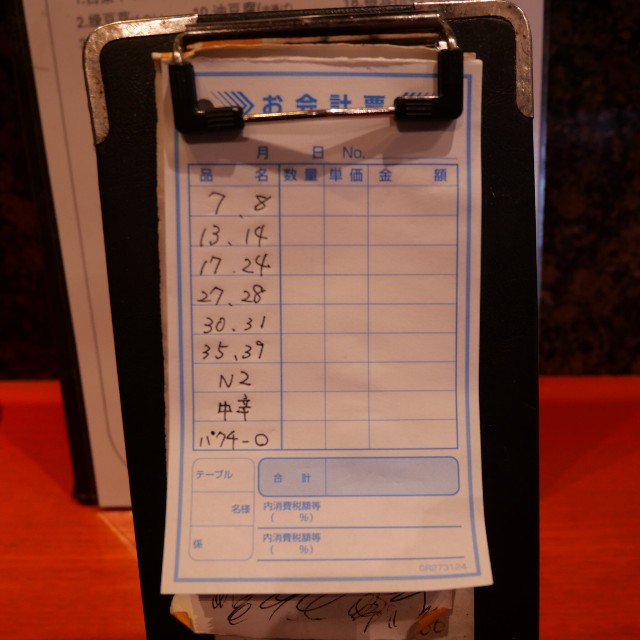 お会計票
月 日 No.
品 名 数量 単価 金 額
7、8
13、14
17.24
27、28
30、31
35、39
N2
中辛
パクチー0
テーブル 合 計
名様 内消費税額等
( %)
係 内消費税額等
( %)